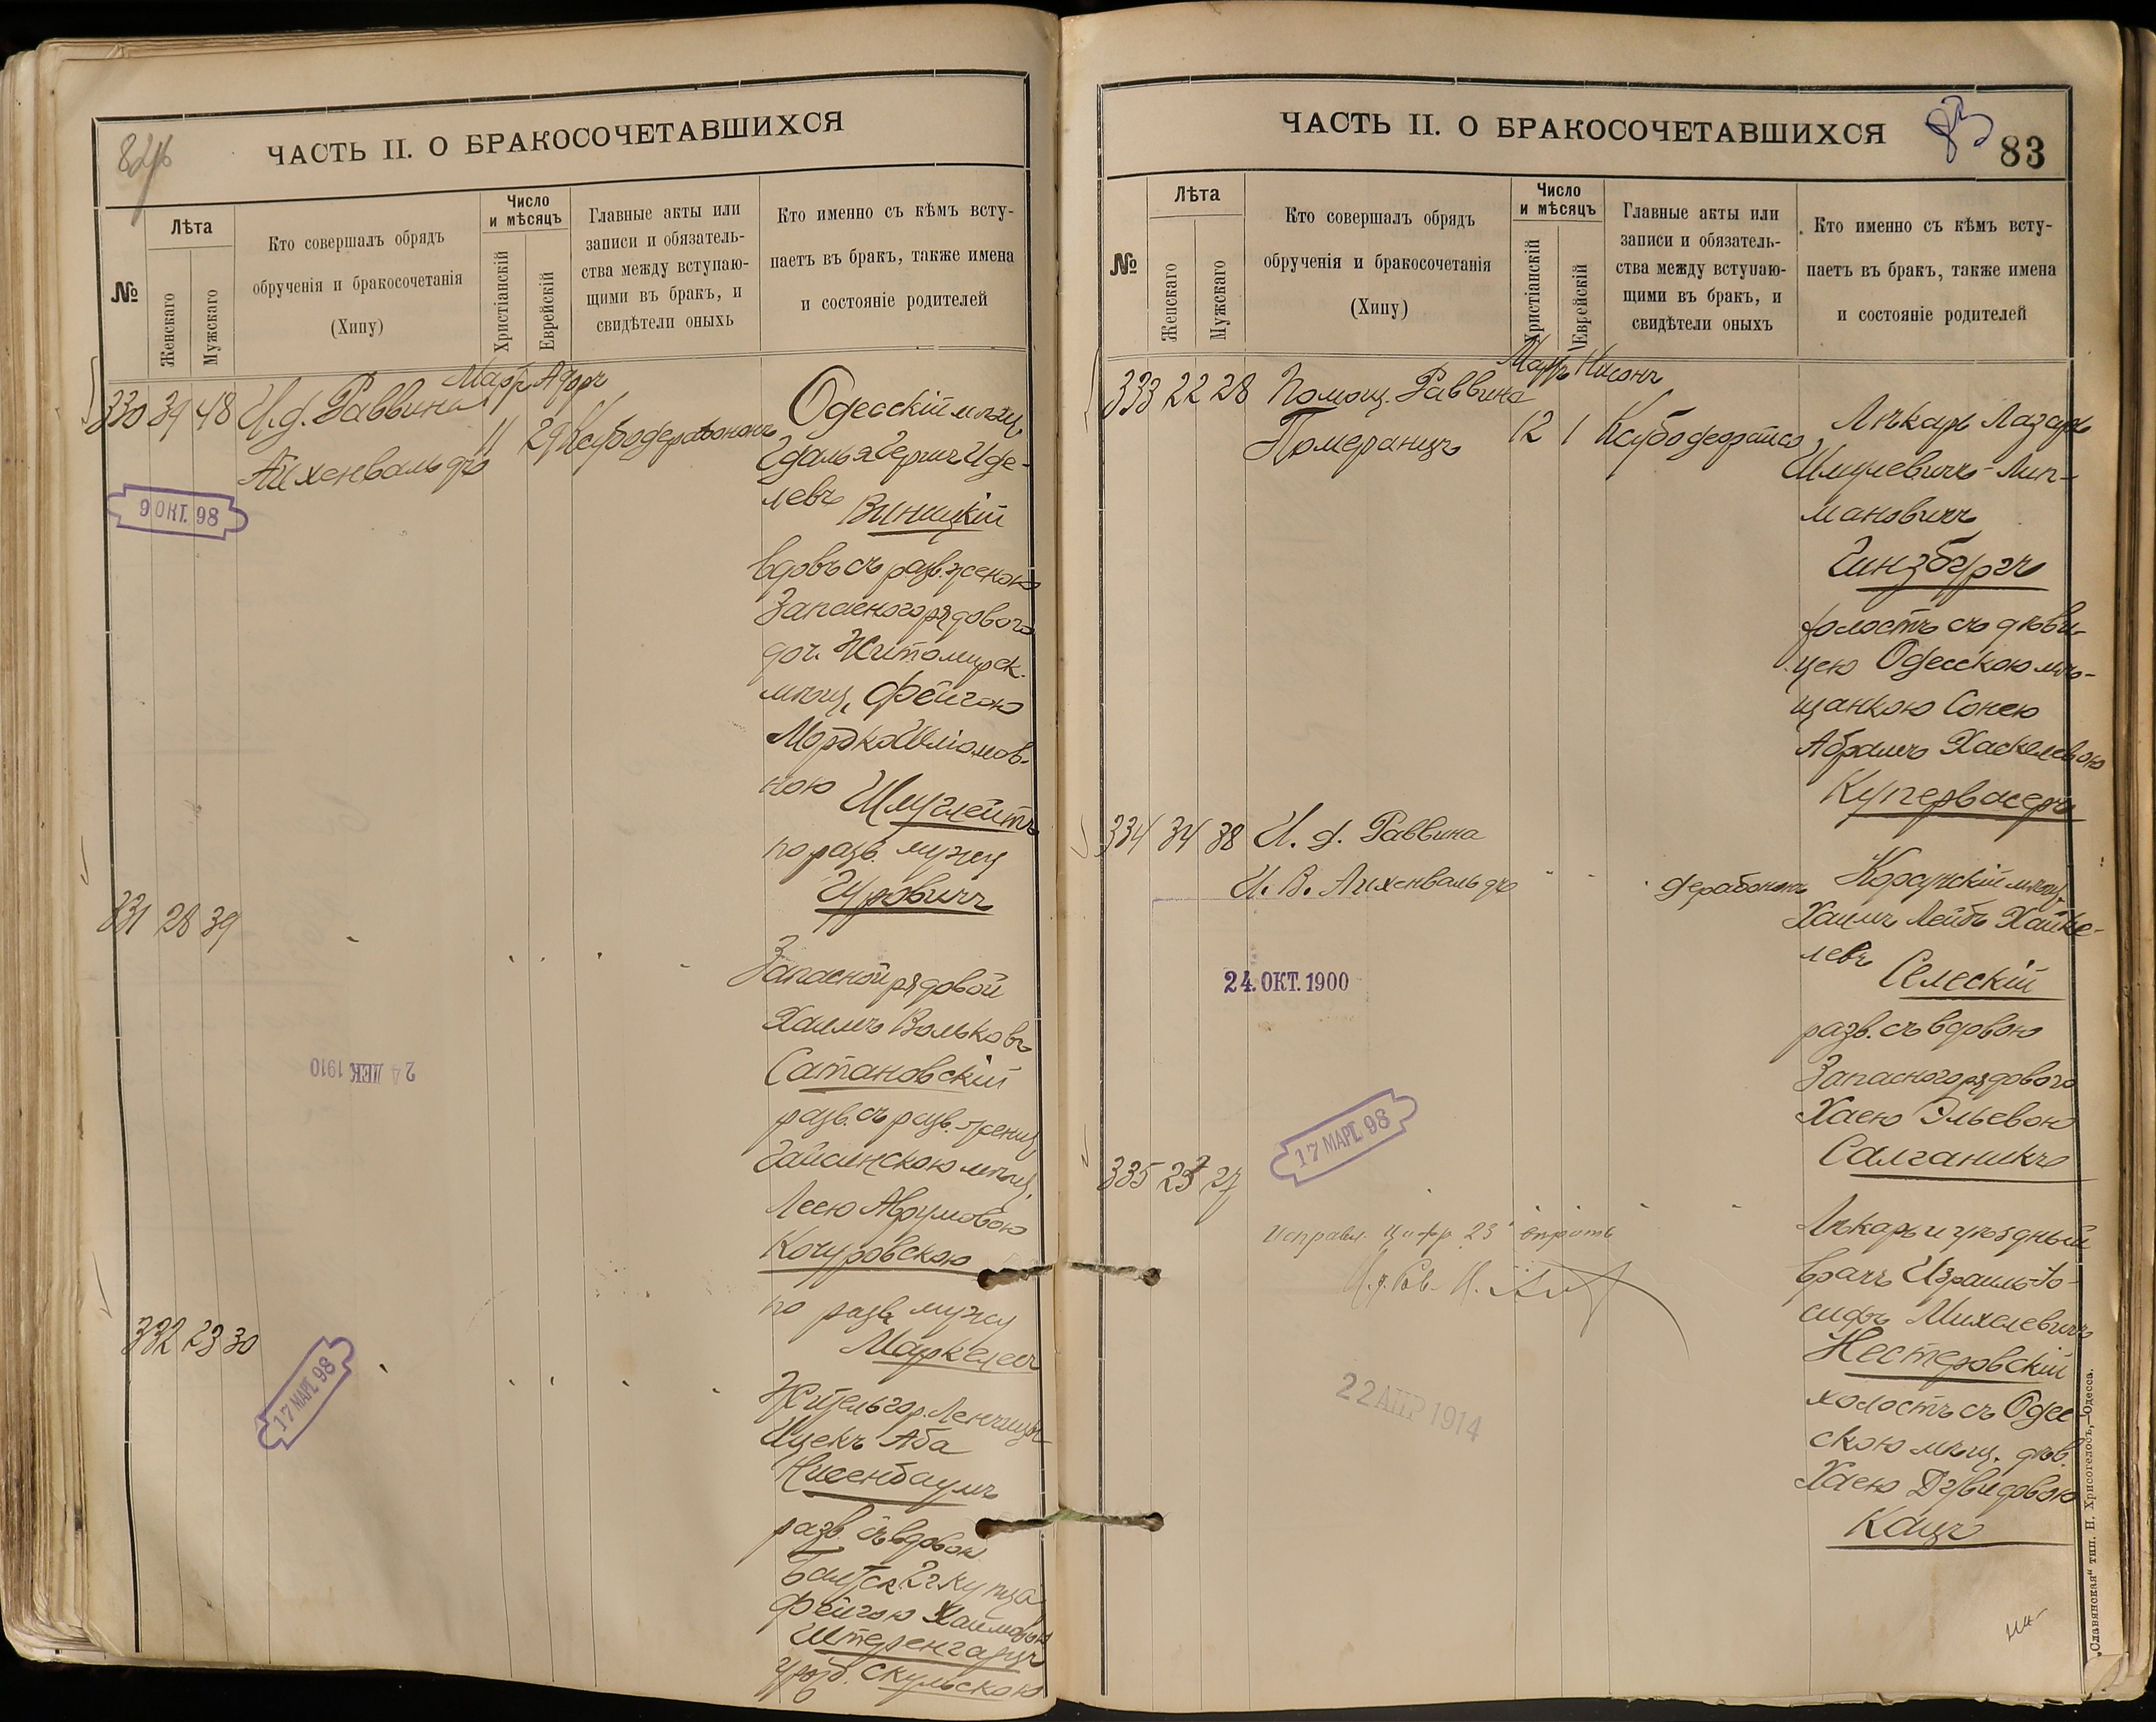 82об
ЧАСТЬ II. О БРАКОСОЧЕТАВШИХСЯ
№
Лѣта
Женскаго
Мужскаго
Кто совершалъ обрядъ
обрученія и бракосочетанія
(Хипу)
Число
и мѣсяцъ
Христіанскій
Еврейскій
Главные акты или
записи и обязатель-
ства между вступаю-
щими въ бракъ, и
свидѣтели оныхъ
Кто именно съ кѣмъ всту-
паетъ въ бракъ, также имена
и состояніе родителей
Мартъ Адоръ
330 39 48 И. д. Раввина
Айхенвальдъ
11 29
9 ОКТ. 98
Одесскій мѣщ.
Идe-
левъ Виницкій
вдовъ съ разв. женою
Запасного рядового
доч. Житомирск.
мѣщ. Фейгою
Мордко Шліомов-
ною Шмуглейтъ
по разв. мужу
Гуровичъ
331 28 39
Запасной рядовой
Хаимъ Вольковъ
Сатановскій
разв. съ разв. женщ.
Гайсинскою мѣщ.
Леею Аврумовою
Кочуровскою
по разв. мужу
24 ДЕК 1910
332 23 30
17 МАРТ. 98
Житель гор. Ленчицы
Ицекъ Аба
Нисенбаумъ
разв. съ вдовою
Балтск. 2 г. купца
Фейгою Хаимовою
Штеренгарцъ
урожд. Скульскою
83
83
ЧАСТЬ II. О БРАКОСОЧЕТАВШИХСЯ
№
Лѣта
Женскаго
Мужскаго
Кто совершалъ обрядъ
обрученія и бракосочетанія
(Хипу)
Число
и мѣсяцъ
Христіанскій
Еврейскій
Главные акты или
записи и обязатель-
ства между вступаю-
щими въ бракъ, и
свидѣтели оныхъ
Кто именно съ кѣмъ всту-
паетъ въ бракъ, также имена
и состояніе родителей
Мартъ Нисонъ
333 22 28 Помощ. Раввина
Померанцъ
12 1
Лѣкарь Лазарь
Шмулевичъ-Лип-
мановичъ
Гинзбургъ
холостъ съ дѣви-
цею Одесскою мѣ-
щанкою Сонею
Абрамъ Хаскелевою
Купервасеръ
334 34 38 И. д. Раввина
И. В. Айхенвальдъ
24. ОКТ. 1900
Корсунскій мѣщ.
Хаимъ Лейбъ Хайке-
левъ
Селескій
разв. съ вдовою
Запасного рядового
Хаею Эльевою
Салганикъ
17 МАРТ. 98
335 23 27
Исправл. цифр 23 вѣрить
22 АПР 1914
Лѣкарь и уѣздный
врачъ Израиль-Іо-
сифъ Михелевичъ
Нестеровскій
холостъ съ Одес-
скою мѣщ. дѣв.
Хаею Давидовою
Кацъ
„Славянская“ тип. Н. Хрисогелосъ,—Одесса.